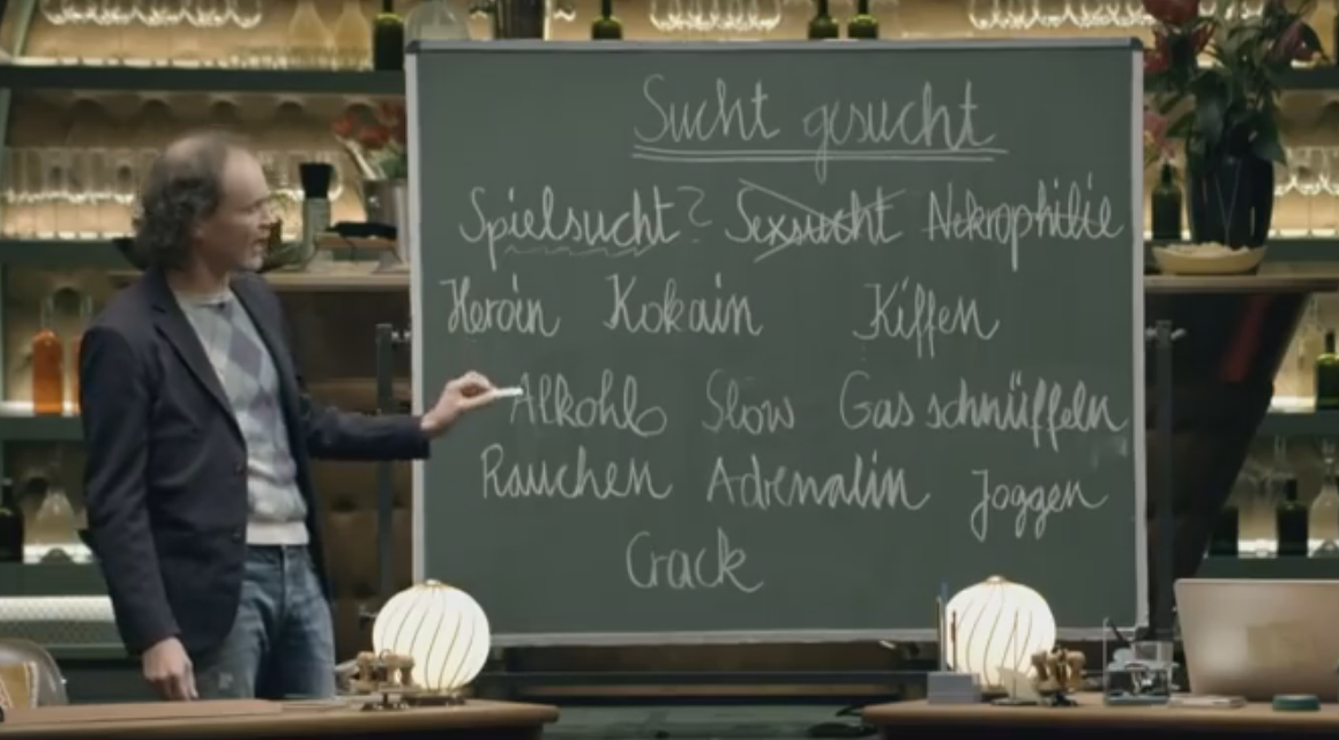 Sucht gesucht
Spielsucht? Sexsucht Nekrophilie
Heroin Kokain Kiffen
Alkohol Slow Gas schnüffeln
Rauchen Adrenalin Joggen
Crack